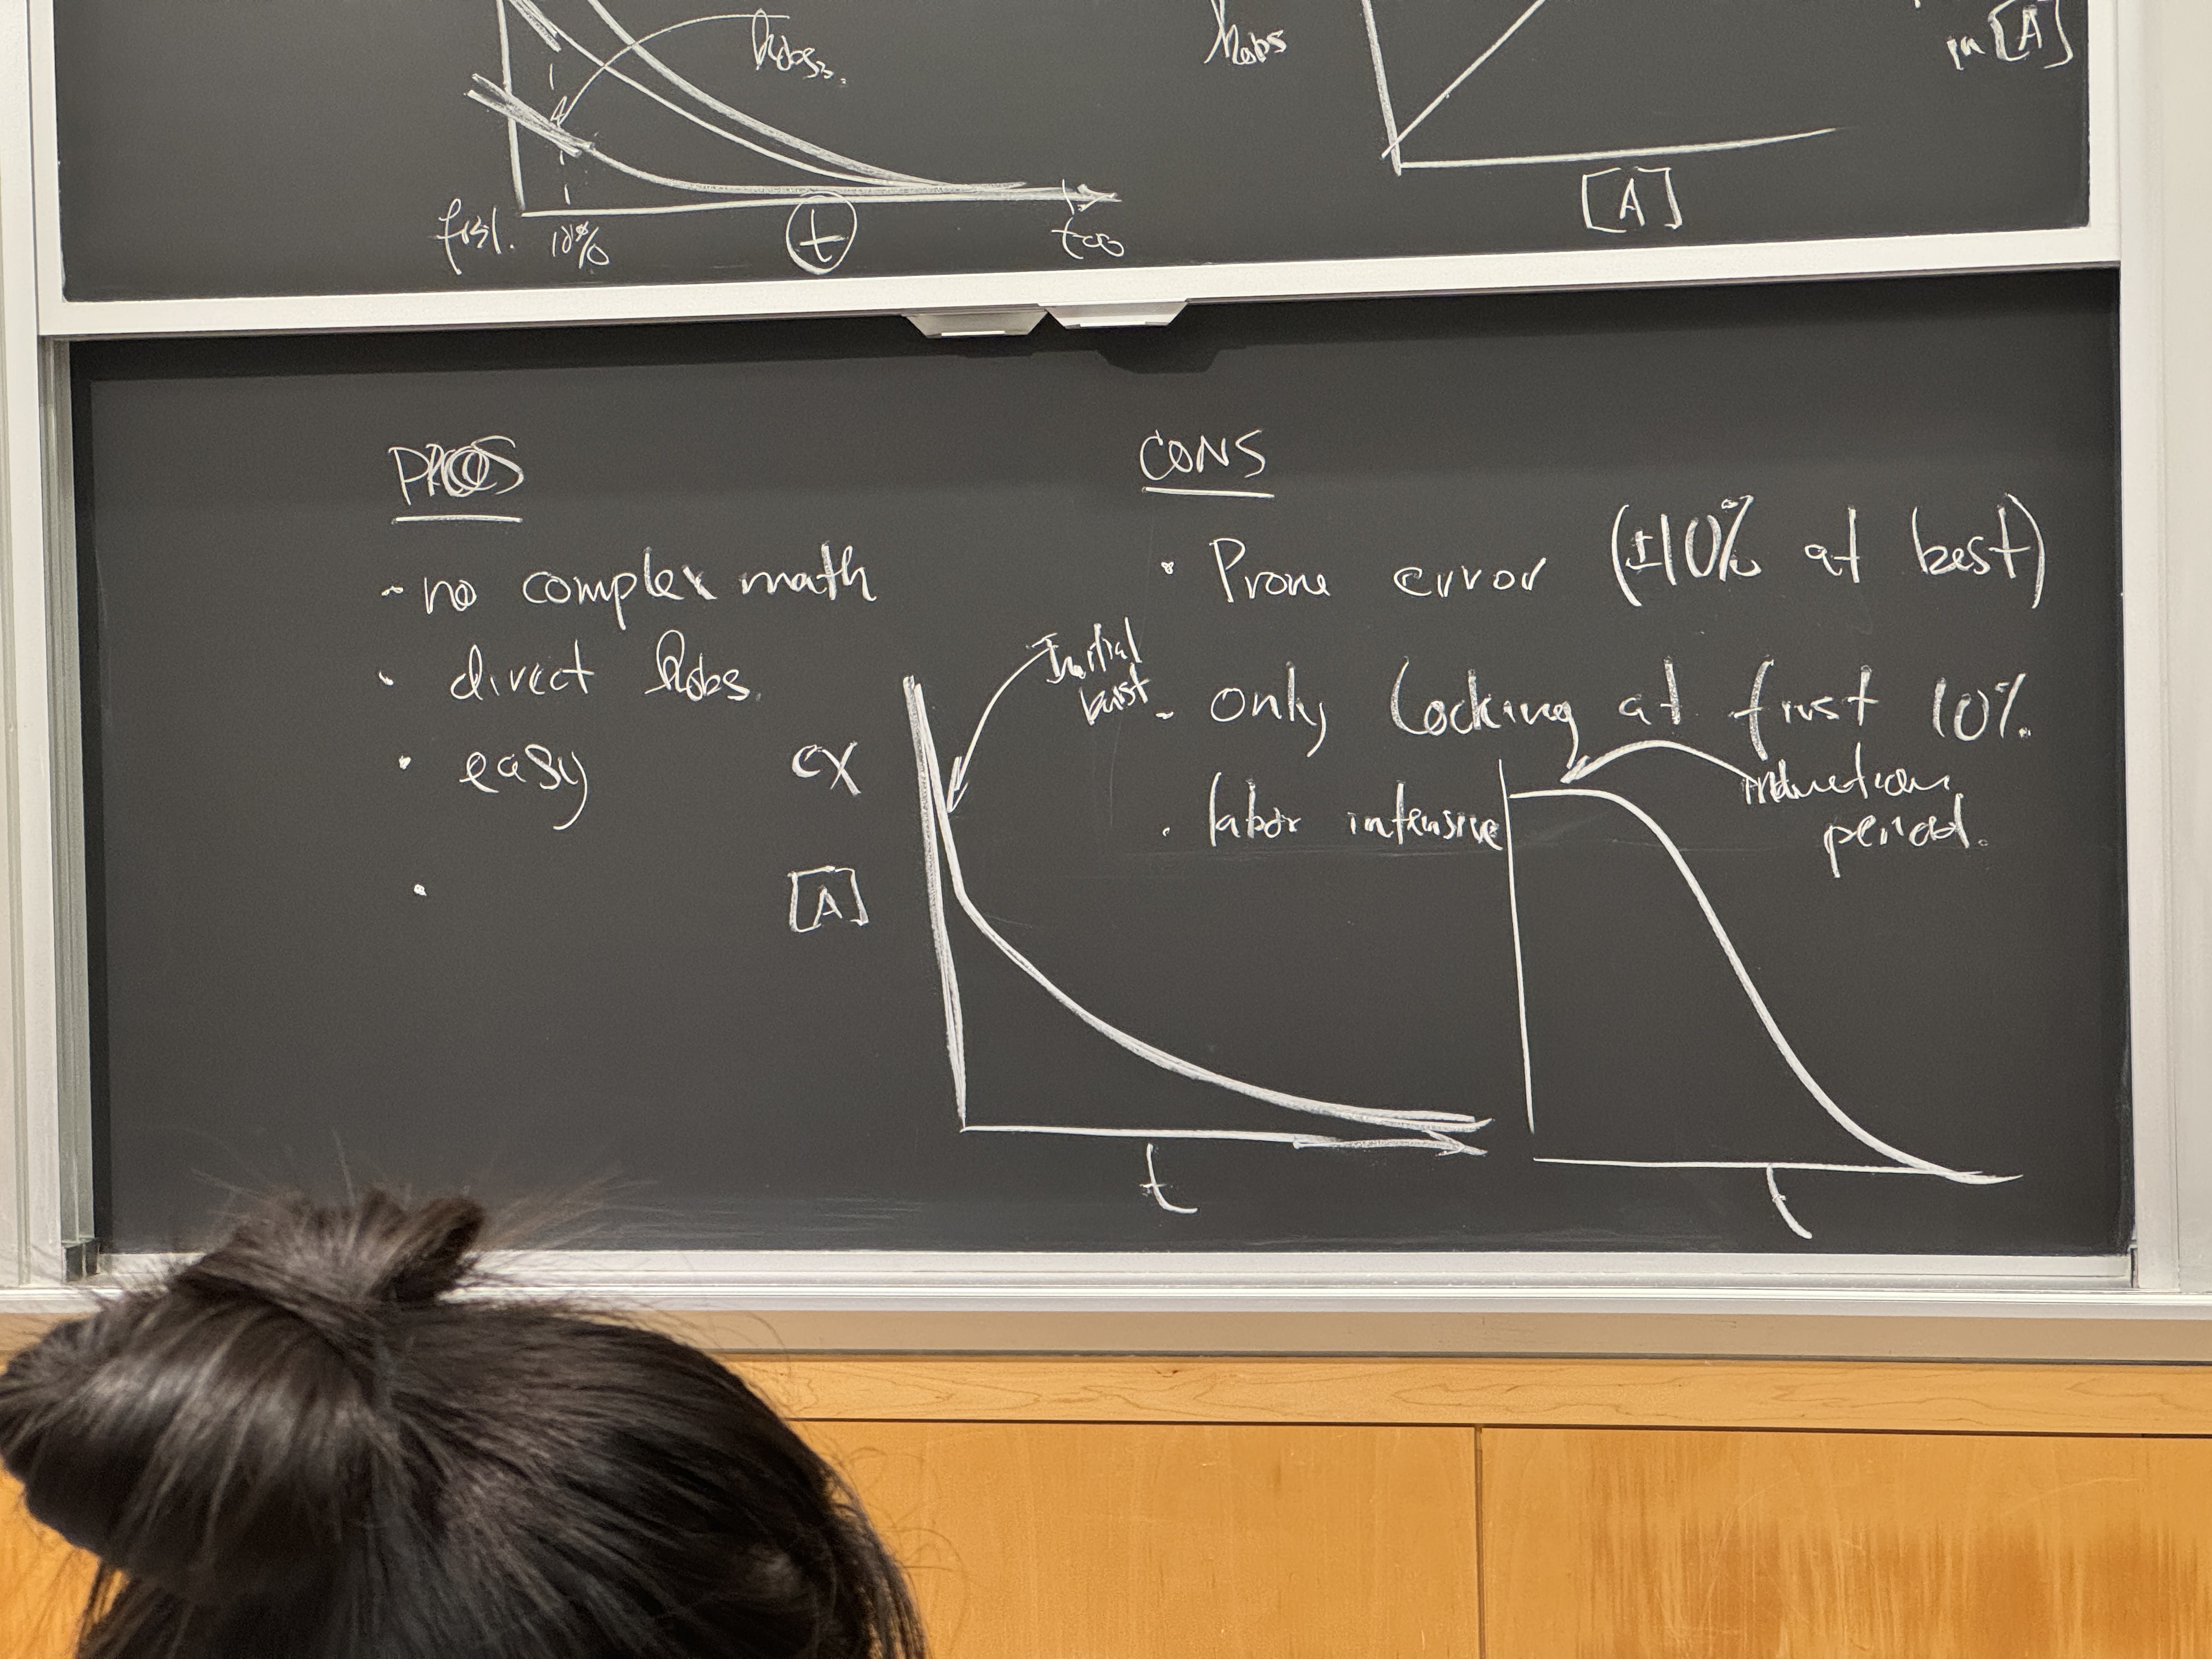 kobs₃.
first.
10%
t
t∞
kobs
[A]
in [A]
PROS
- no complex math
• direct kobs
• easy
•
CONS
• Prone error (±10% at best)
- only looking at first 10%
• labor intensive
ex
[A]
Initial
burst
t
induction
period.
t